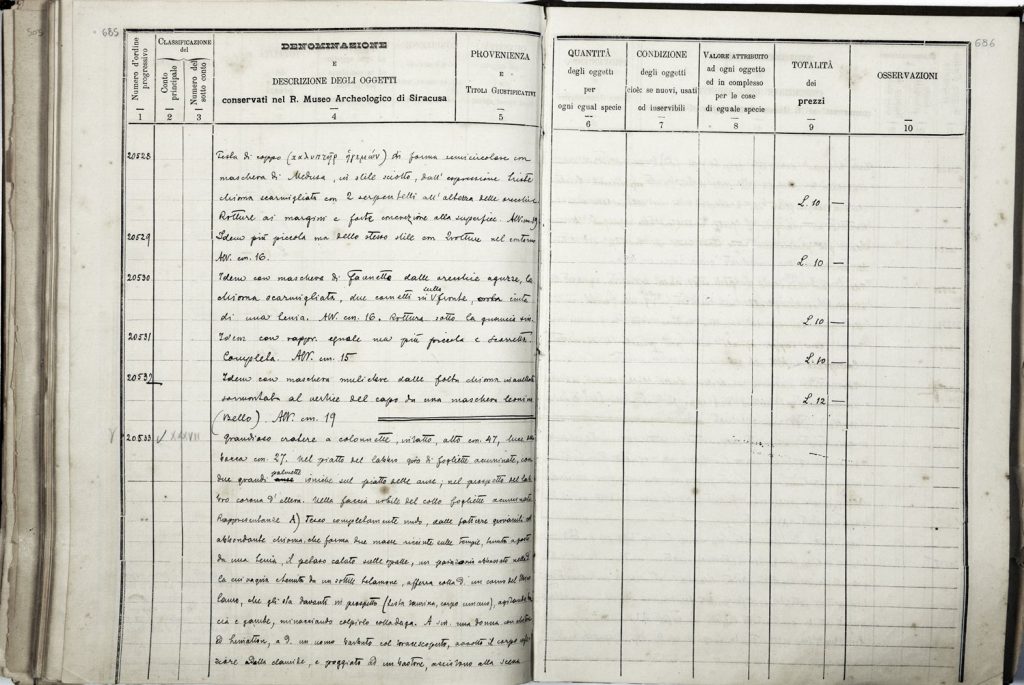 505
685
686
Numero d'ordine progressivo
CLASSIFICAZIONE
del
Conto principale
Numero del sotto conto
DENOMINAZIONE
E
DESCRIZIONE DEGLI OGGETTI
conservati nel R. Museo Archeologico di Siracusa
PROVENIENZA
E
TITOLI GIUSTIFICATIVI
QUANTITÀ
degli oggetti
per
ogni egual specie
CONDIZIONE
degli oggetti
cioè: se nuovi, usati
od inservibili
VALORE ATTRIBUITO
ad ogni oggetto
ed in complesso
per le cose
di eguale specie
TOTALITÀ
dei
prezzi
OSSERVAZIONI
1 2 3 4 5 6 7 8 9 10
20528 Testa di coppo (καλυπτὴρ ἡγεμών) di forma semicircolare con
maschera di Medusa, in stile sciolto, dall' espressione triste
chioma scarmigliata con 2 serpentelli all' altezza delle orecchie
Rotture ai margini e forte concrezione alla superfice. Alt. cm. 19 L. 10 —
20529 Idem più piccola ma dello stesso stile con 2 rotture nel contorno
Alt. cm. 16. L. 10 —
20530 Idem con maschera di Faunetto dalle orecchie aguzze, la
chioma scarmigliata, due cornetti sulla fronte, cinta
di una tenia. Alt. cm. 16. Rottura sotto la guancia L. 10 —
20531 Idem con rappr. eguale ma più piccola e scorretta.
Completa. Alt. cm. 15 L. 10 —
20532 Idem con maschera muliebre dalle folta chioma
sormontata al vertice del capo da una maschera leonina L. 12 —
(Bello). Alt. cm. 19
20533 XXXVII Grandioso cratere a colonnette, intatto, alto cm. 47, luce
bocca cm. 27. Nel piatto del labbro giro di fogliette acuminate, con
due grandi palmette ioniche sul piatto delle anse; nel prospetto del lab
bro corona d' ellera. Nella faccia nobile del collo fogliette acuminate
Rappresentanze A) Teseo completamente nudo, dalle fattezze giovanili
abbondante chioma che forma due masse ricciute sulle tempie,
da una tenia, il petaso calato sulle spalle, un
la cui vagina è tenuta da un sottile telamone, afferra colla d. un corno del Mino
tauro, che gli sta davanti in prospetto (testa taurina, corpo umano), agitando brac
cia e gambe, minacciando colpirlo colla daga. A sin. una donna con chitone
ed himation, a d. un uomo barbato col torace scoperto, avvolto il corpo
dalla clamide, e poggiato ad un bastone, assistono alla scena